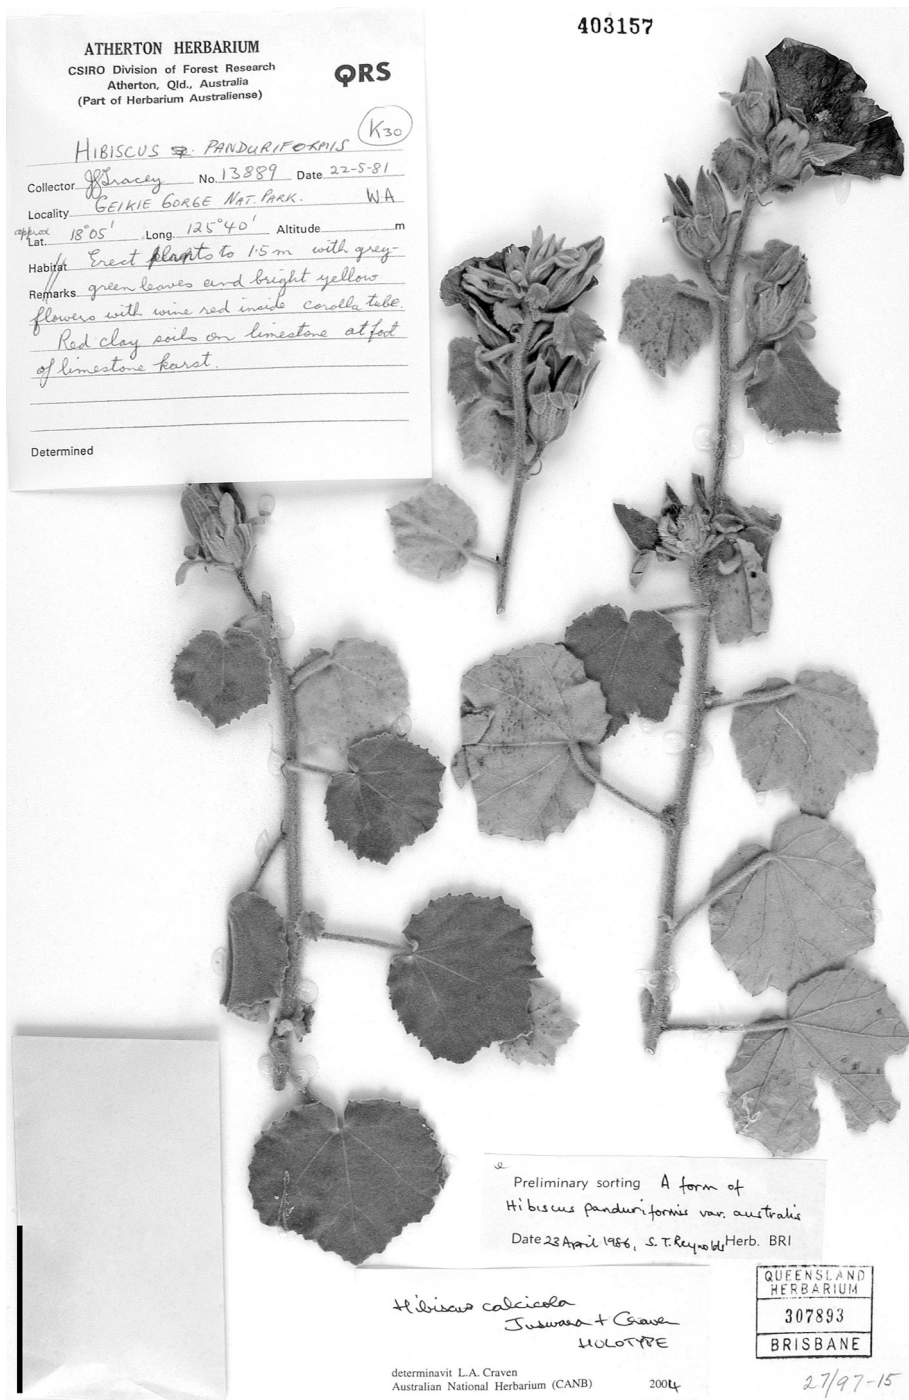 403157
ATHERTON HERBARIUM
CSIRO Division of Forest Research
Atherton, Qld., Australia
(Part of Herbarium Australiense)
QRS
K30
HIBISCUS PANDURIFORMIS
Collector JGTracey No. 13889 Date 22-5-81
Locality GEIKIE GORGE NAT. PARK. WA
approx
Lat. 18°05' Long. 125°40' Altitude m
Habitat Erect plants to 1.5 m with grey-
Remarks green leaves and bright yellow
flowers with wine red inside corolla tube.
Red clay soils on limestone at foot
of limestone karst.
Determined
Preliminary sorting A form of
Hibiscus panduriformis var. australis
Date 23 April 1986, S.T.Reynolds Herb. BRI
Hibiscus calcicola
Juswara + Craven
HOLOTYPE
determinavit L.A. Craven
Australian National Herbarium (CANB) 2004
QUEENSLAND
HERBARIUM
307893
BRISBANE
27/97-15